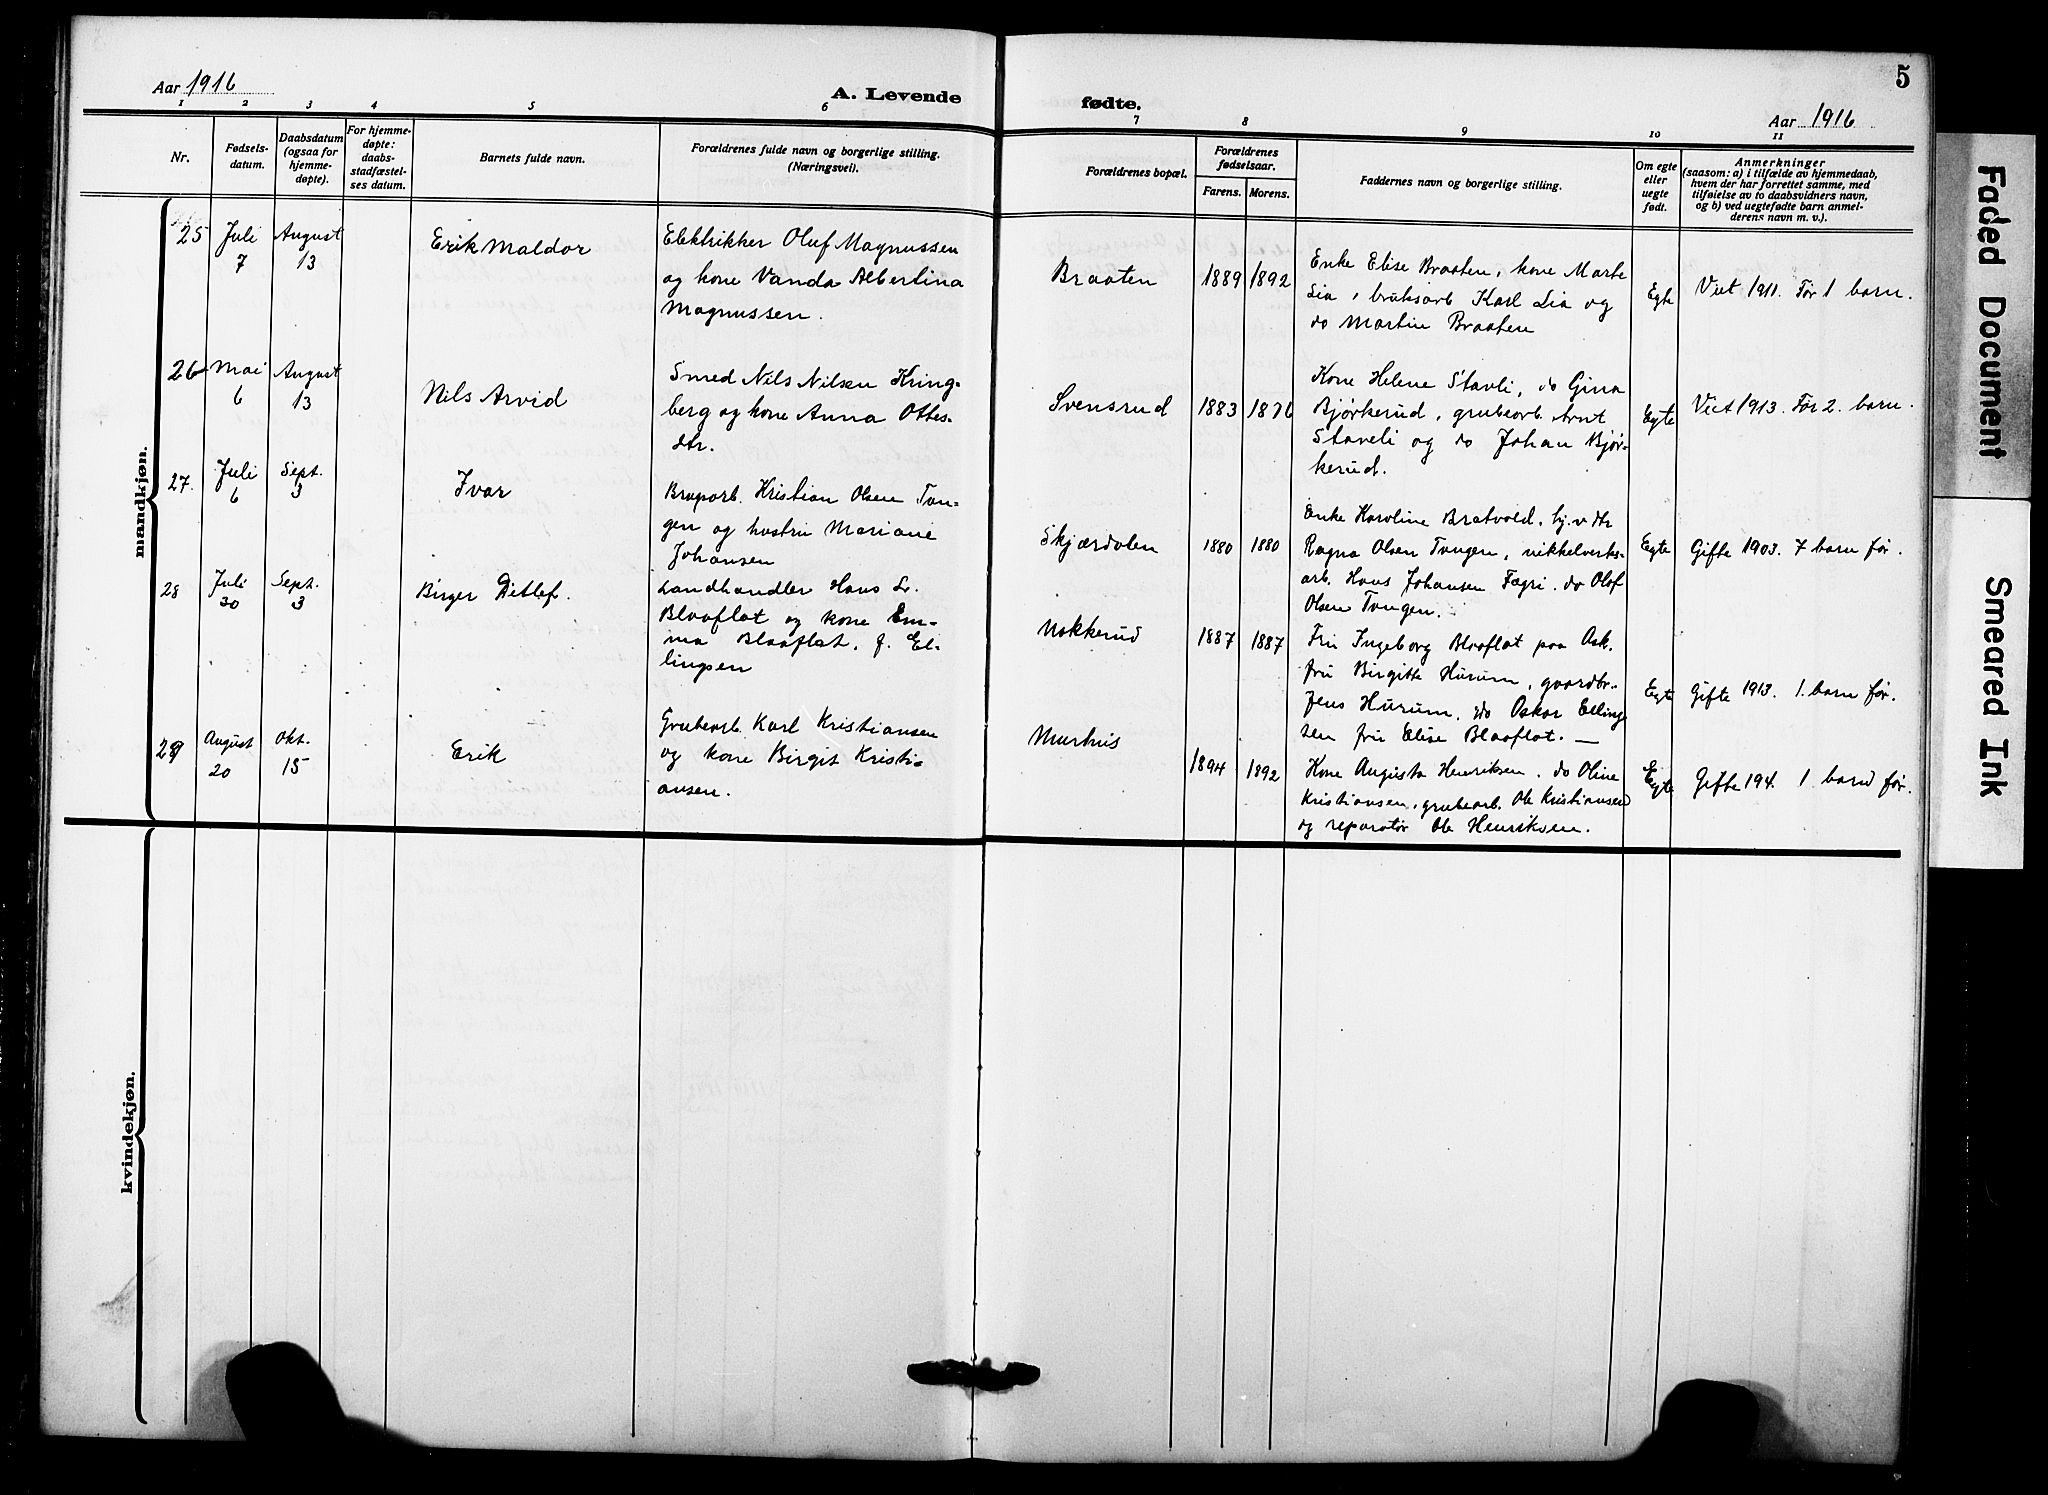 5
Aar 1916
A. Levende
fødte.
Aar 1916
1 2 3 4 5 6 7 8 9 10 11
Nr.
Fødsels-
datum.
Daabsdatum
(ogsaa for
hjemme-
døpte).
For hjemme-
døpte:
daabs-
stadfæstel-
ses datum.
Barnets fulde navn.
Forældrenes fulde navn og borgerlige stilling.
(Næringsvei).
Forældrenes bopæl.
Forældrenes
fødselsaar.
Farens. Morens.
Faddernes navn og borgerlige stilling.
Om egte
eller
uegte
født.
Anmerkninger
(saasom: a) i tilfælde av hjemmedaab,
hvem der har forrettet samme, med
tilføielse av to daabsvidners navn,
og b) ved uegtefødte barn anmel-
derens navn m. v.).
mandkjøn.
25
Juli
7
August
13
Erik Maldor
Elektrikker Oluf Magnussen
og kone Vanda Albertina
Magnussen.
Braaten
1889 1892
Enke Elise Braaten, kone Marte
Lia, bruksarb Karl Lia og
do Martin Braaten
Egte
Viet 1911. Før 1 barn.
26
Mai
6
August
13
Nils Arvid
Smed Nils Nilsen Kring-
berg og kone Anna Ottes-
dtr.
Svensrud
1883 1876
Kone Helene Stavli, do Gina
Bjørkerud, grubearb. Arnt
Staveli og do Johan Bjør-
kerud.
Egte
Viet 1913. Før 2. barn.
27.
Juli
6
Sept.
3
Ivar
Brugarb. Kristian Olsen Tan-
gen og hustru Mariane
Johansen
Skjærdalen
1880 1880
Enke Karoline Bratvold, hj.v dtr
Ragna Olsen Tangen, nikkelverks-
arb. Hans Johansen Fagri. do Olaf
Olsen Tangen.
Egte
Gifte 1903. 7 barn før.
28
Juli
30
Sept.
3
Birger Ditlef.
Landhandler Hans L.
Blaaflat og kone Em-
ma Blaaflat, f. El-
lingsen
Nakkerud
1887 1887
Fru Ingeborg Blaaflat paa Ask.
fru Birgitte Hurum, gaardbr.
Jens Hurum, do Oskar Elling
sen fru Elise Blaaflat. —
Egte
Gifte 1913. 1. barn før.
29
August
20
Okt.
15
Erik
Grubearb. Karl Kristiansen
og kone Birgit Kristi-
ansen.
Murhus
1894 1892
Kone Augusta Henriksen. do Oline
Kristiansen, grubearb. Ole Kristiansen
og reparatør Ole Henriksen.
Egte
Gifte 194. 1 barn før.
kvindekjøn.
Faded Document
Smeared Ink